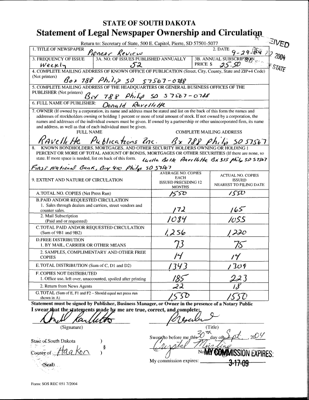 STATE OF SOUTH DAKOTA
Statement of Legal Newspaper Ownership and Circulation
Return to: Secretary of State, 500 E. Capitol, Pierre, SD 57501-5077
1. TITLE OF NEWSPAPER Pioneer Review
2. DATE 9-29-04
3. FREQUENCY OF ISSUE Weekly
3A. NO. OF ISSUES PUBLISHED ANNUALLY 52
3B. ANNUAL SUBSCRIPTION PRICE $ 25.50
4. COMPLETE MAILING ADDRESS OF KNOWN OFFICE OF PUBLICATION (Street, City, County, State and ZIP+4 Code) (Not printers)
Box 788 Philip SD 57567-0788
5. COMPLETE MAILING ADDRESS OF THE HEADQUARTERS OR GENERAL BUSINESS OFFICES OF THE
PUBLISHER (Not printers) Box 788 Philip SD 57567-0788
6. FULL NAME OF PUBLISHER: Donald Ravellette
7. OWNER (If owned by a corporation, its name and address must be stated and also on the back of this form the names and
addresses of stockholders owning or holding 1 percent or more of total amount of stock. If not owned by a corporation, the
names and addresses of the individual owners must be given. If owned by a partnership or other unincorporated firm, its name
and address, as well as that of each individual must be given.
FULL NAME COMPLETE MAILING ADDRESS
Ravellette Publications Inc. Bx 788 Philip SD 57567
8. KNOWN BONDHOLDERS, MORTGAGEES, AND OTHER SECURITY HOLDERS OWNING OR HOLDING 1
PERCENT OR MORE OF TOTAL AMOUNT OF BONDS, MORTGAGES OR OTHER SECURITIES (If there are none, so
state. If more space is needed, list on back of this form.
Philip SD 57567
1. EXTENT AND NATURE OF CIRCULATION
AVERAGE NO. COPIES EACH ISSUED PRECEDING 12 MONTHS
ACTUAL NO. COPIES ISSUED NEAREST TO FILING DATE
A. TOTAL NO. COPIES (Net Press Run) 1550 1550
B. PAID AND/OR REQUESTED CIRCULATION
1. Sales through dealers and carriers, street vendors and
counter sales. 172 165
2. Mail Subscription
(Paid and or requested) 1084 1055
C. TOTAL PAID AND/OR REQUESTED CIRCULATION
(Sum of 9B1 and 9B2) 1,256 1,220
D. FREE DISTRIBUTION
1. BY MAIL, CARRIER OR OTHER MEANS 73 75
2. SAMPLES, COMPLIMENTARY AND OTHER FREE
COPIES 14 14
E. TOTAL DISTRIBUTION (Sum of C, D1 and D2) 1343 1309
F. COPIES NOT DISTRIBUTED
1. Office use, left over, unaccounted, spoiled after printing 185 223
2. Return from News Agents 22 18
G. TOTAL (Sum of E, F1 and F2 - Should equal net press run
shown in A) 1550 1550
Statement must be signed by Publisher, Business Manager, or Owner in the presence of a Notary Public
I swear that the statements made by me are true, correct, and complete:
(Signature) (Title)
State of South Dakota )
County of Haakon )
(Seal)
Sworn to before me this day of Sept 2004
MY COMMISSION EXPIRES:
My commission expires: 3-17-09
Form: SOS REC 051 7/2004